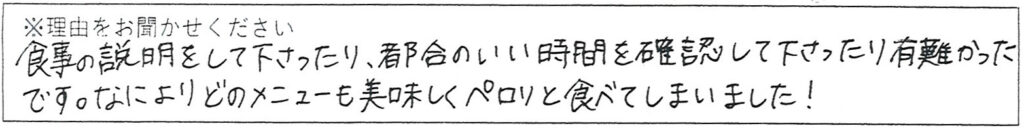 ※理由をお聞かせください
食事の説明をして下さったり、都合のいい時間を確認して下さったり有難かった
です。なによりどのメニューも美味しくペロリと食べてしまいました！